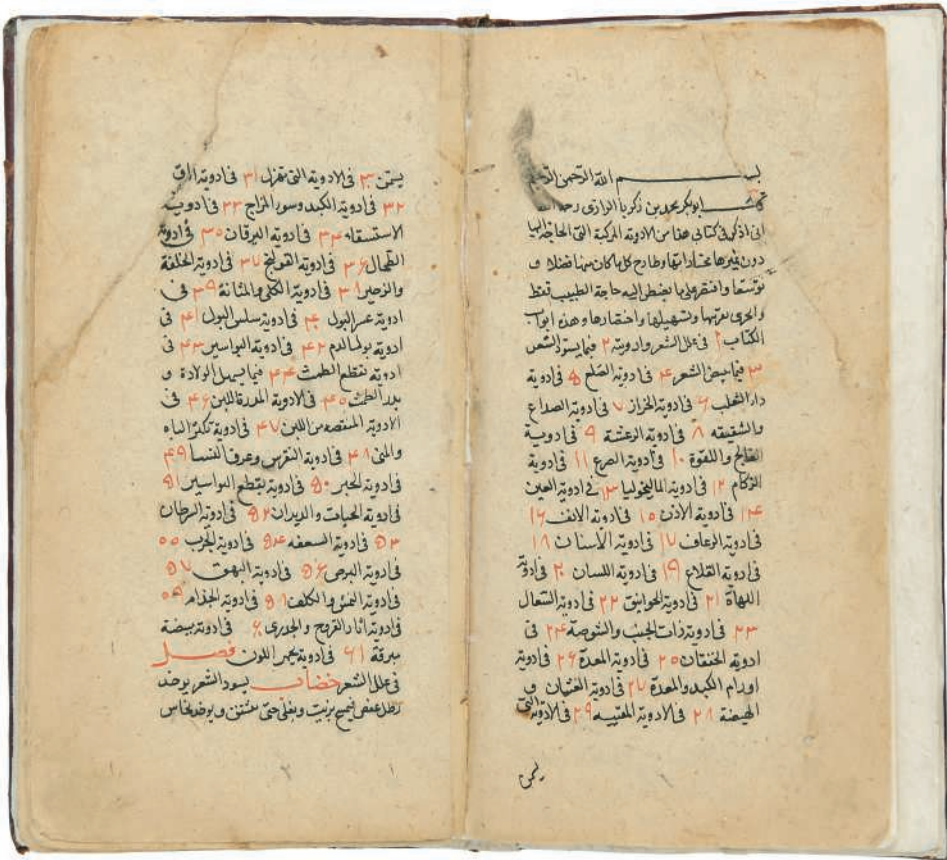 بسم الله الرحمن الرحيم
ابوبكر محمد بن زكريا الرازى رحمه الله
انى اذكر فى كتابى هذا من الادوية المركبة التى الحاجة اليها
دون غيرها مختارا منها وطارح كل ما كان منها فضلا و
توسعا واقتصر على ما يضطر اليه حاجة الطبيب فقط
والحرى بقربها وتسهيلها واختصارها وهذه ابواب
الكتاب ۱ فى علل الشعر وادويته ۲ فيما يسود الشعر
۳ فيما يبيض الشعر ۴ فى ادوية الصلع ۵ فى ادوية
داء الثعلب ۶ فى ادوية الحزاز ۷ فى ادوية الصداع
والشقيقه ۸ فى ادوية الرعشة ۹ فى ادوية
الفالج واللقوة ۱۰ فى ادوية الصرع ۱۱ فى ادوية
الزكام ۱۲ فى ادوية الماليخوليا ۱۳ فى ادوية العين
۱۴ فى ادوية الاذن ۱۵ فى ادوية الانف ۱۶
فى ادوية الرعاف ۱۷ فى ادوية الاسنان ۱۸
فى ادوية القلاع ۱۹ فى ادوية اللسان ۲۰ فى ادوية
اللهاة ۲۱ فى ادوية الخوانيق ۲۲ فى ادوية السعال
۲۳ فى ادوية ذات الجنب والشوصة ۲۴ فى
ادوية الخفقان ۲۵ فى ادوية المعدة ۲۶ فى ادوية
اورام الكبد والمعدة ۲۷ فى ادوية الغثيان و
الهيضة ۲۸ فى الادوية المقيّيه ۲۹ فى الادوية التى
يسمن
يسمن ۳۰ فى الادوية التى تهزل ۳۱ فى ادوية
۳۲ فى ادوية الكبد وسوء المزاج ۳۳ فى ادوية
الاستسقاء ۳۴ فى ادوية اليرقان ۳۵ فى ادوية
الطحال ۳۶ فى ادوية القولنج ۳۷ فى ادوية الخلفة
والزحير ۳۸ فى ادوية الكلى والمثانة ۳۹ فى
ادوية عسر البول ۴۰ فى ادوية سلس البول ۴۱ فى
ادوية بول الدم ۴۲ فى ادوية البواسير ۴۳ فى
ادوية تقطع الطمث ۴۴ فيما يسهل الولادة و
يدر الطمث ۴۵ فى الادوية المدرة للبن ۴۶ فى
الادوية المنقصه من اللبن ۴۷ فى ادوية تكثر الباه
والمنى ۴۸ فى ادوية النقرس وعرق النسا ۴۹
فى ادوية الجبر ۵۰ فى ادوية تقطع البواسير ۵۱
فى ادوية الحيات والديدان ۵۲ فى ادوية السرطان
۵۳ فى ادوية السعفه ۵۴ فى ادوية الجرب ۵۵
فى ادوية البرص ۵۶ فى ادوية البهق ۵۷
فى ادوية النمش والكلف ۵۸ فى ادوية الجذام ۵۹
فى ادوية اثار القروح والجدرى ۶۰ فى ادوية مبيضة
مبرقة ۶۱ فى ادوية يحمر اللون فصل
فى علل الشعر خضاب يسود الشعر يوخذ
رطل عفص فيمسح بزيت ويقلى حتى يتشقق ويوخذ نحاس